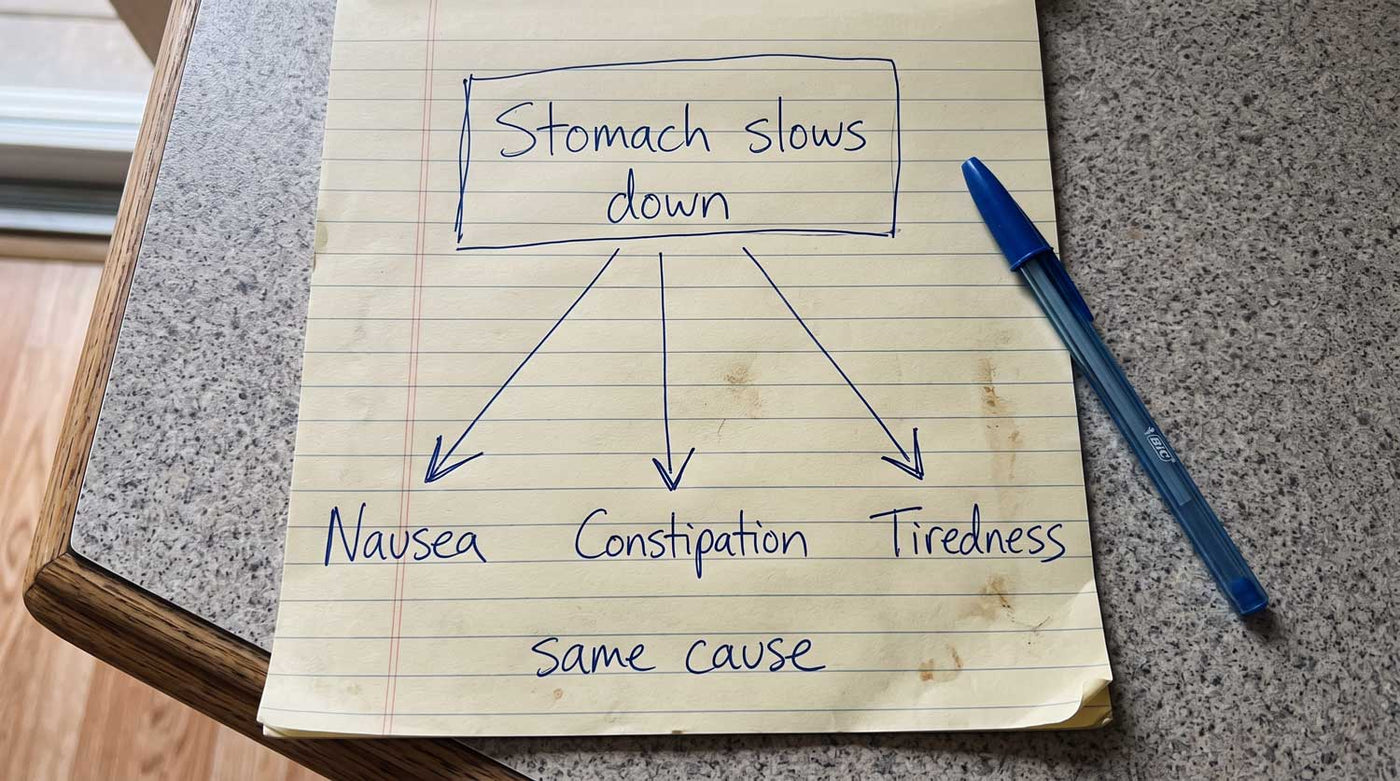 Stomach slows
down
Nausea Constipation Tiredness
same cause
BIC